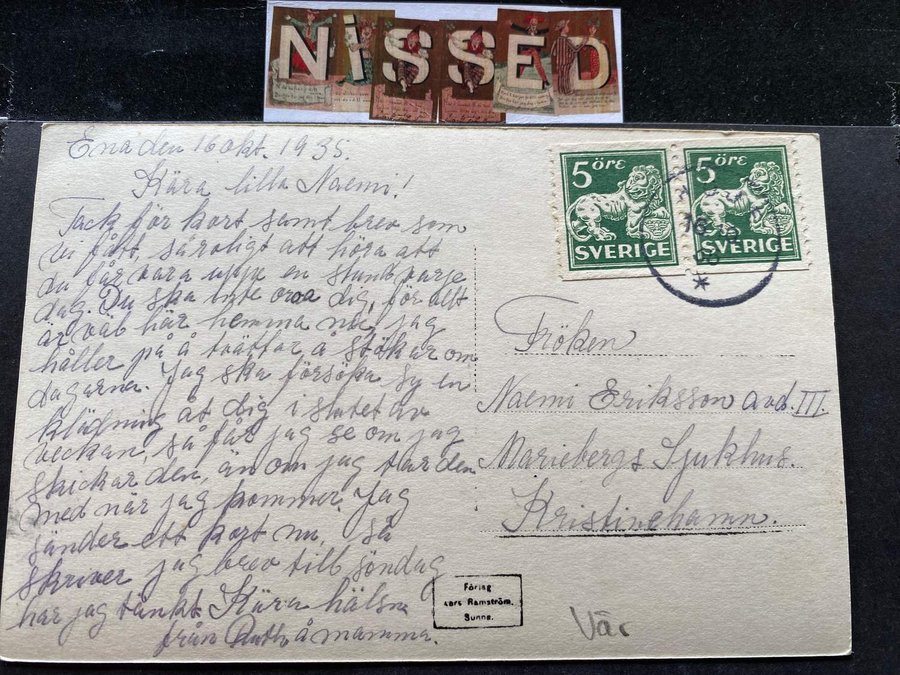 NISSED
Ena den 16 okt. 1935.
Kära lilla Naemi!
Tack för kort samt brev som
vi fått, så roligt att höra att
du får vara uppe en stund varje
dag. Du ska inte oroa dig, för allt
är väl här hemma nu, jag
håller på å tvättar, a stökar om
dagarna. Jag ska försöka sy en
klädning åt dig i slutet av
veckan, så får jag se om jag
skickar den, än om jag tar den
med när jag kommer. Jag
sänder ett kort nu, så
skriver jag brev till söndag
har jag tänkt. Kära hälsn
från Ruth å mamma.
5 öre
SVERIGE
5 öre
SVERIGE
Fröken
Naemi Eriksson avd. III.
Mariebergs Sjukhus.
Kristinehamn.
Förlag
Lars Ramström.
Sunne.
Vär